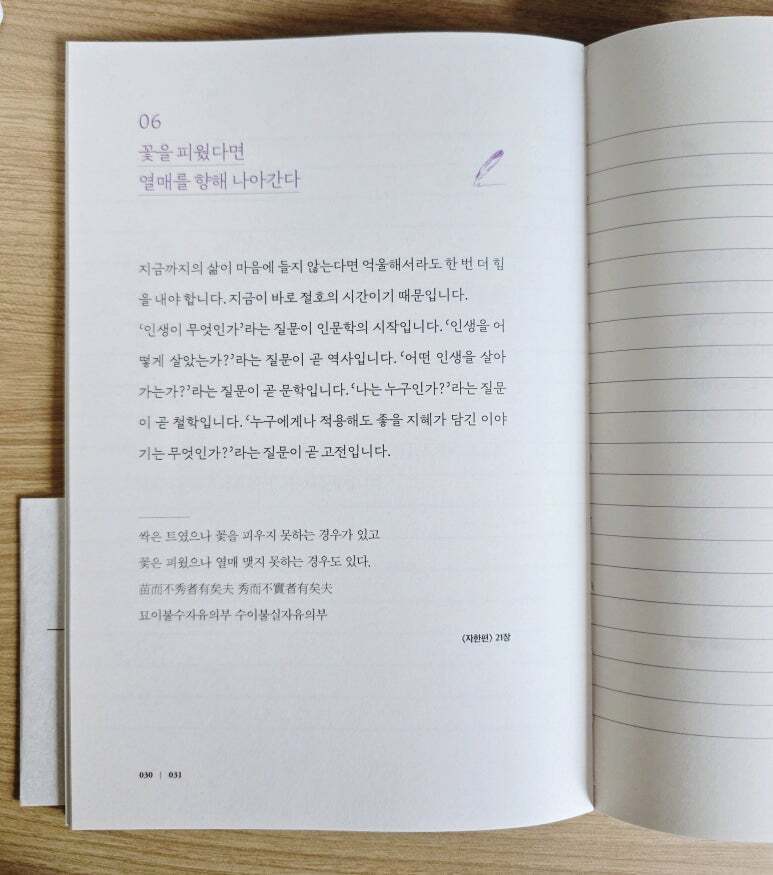 06
꽃을 피웠다면
열매를 향해 나아간다
지금까지의 삶이 마음에 들지 않는다면 억울해서라도 한 번 더 힘
을 내야 합니다. 지금이 바로 절호의 시간이기 때문입니다.
‘인생이 무엇인가’라는 질문이 인문학의 시작입니다. ‘인생을 어
떻게 살았는가?’라는 질문이 곧 역사입니다. ‘어떤 인생을 살아
가는가?’라는 질문이 곧 문학입니다. ‘나는 누구인가?’라는 질문
이 곧 철학입니다. ‘누구에게나 적용해도 좋을 지혜가 담긴 이야
기는 무엇인가?’라는 질문이 곧 고전입니다.
싹은 트였으나 꽃을 피우지 못하는 경우가 있고
꽃은 피웠으나 열매 맺지 못하는 경우도 있다.
苗而不秀者有矣夫 秀而不實者有矣夫
묘이불수자유의부 수이불실자유의부
〈자한편〉 21장
030 | 031